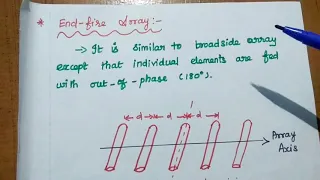 * End-fire Array:-
→ It is similar to broadside array
except that individual elements are fed
with out-of-phase (180°).
d d d
Array
Axis